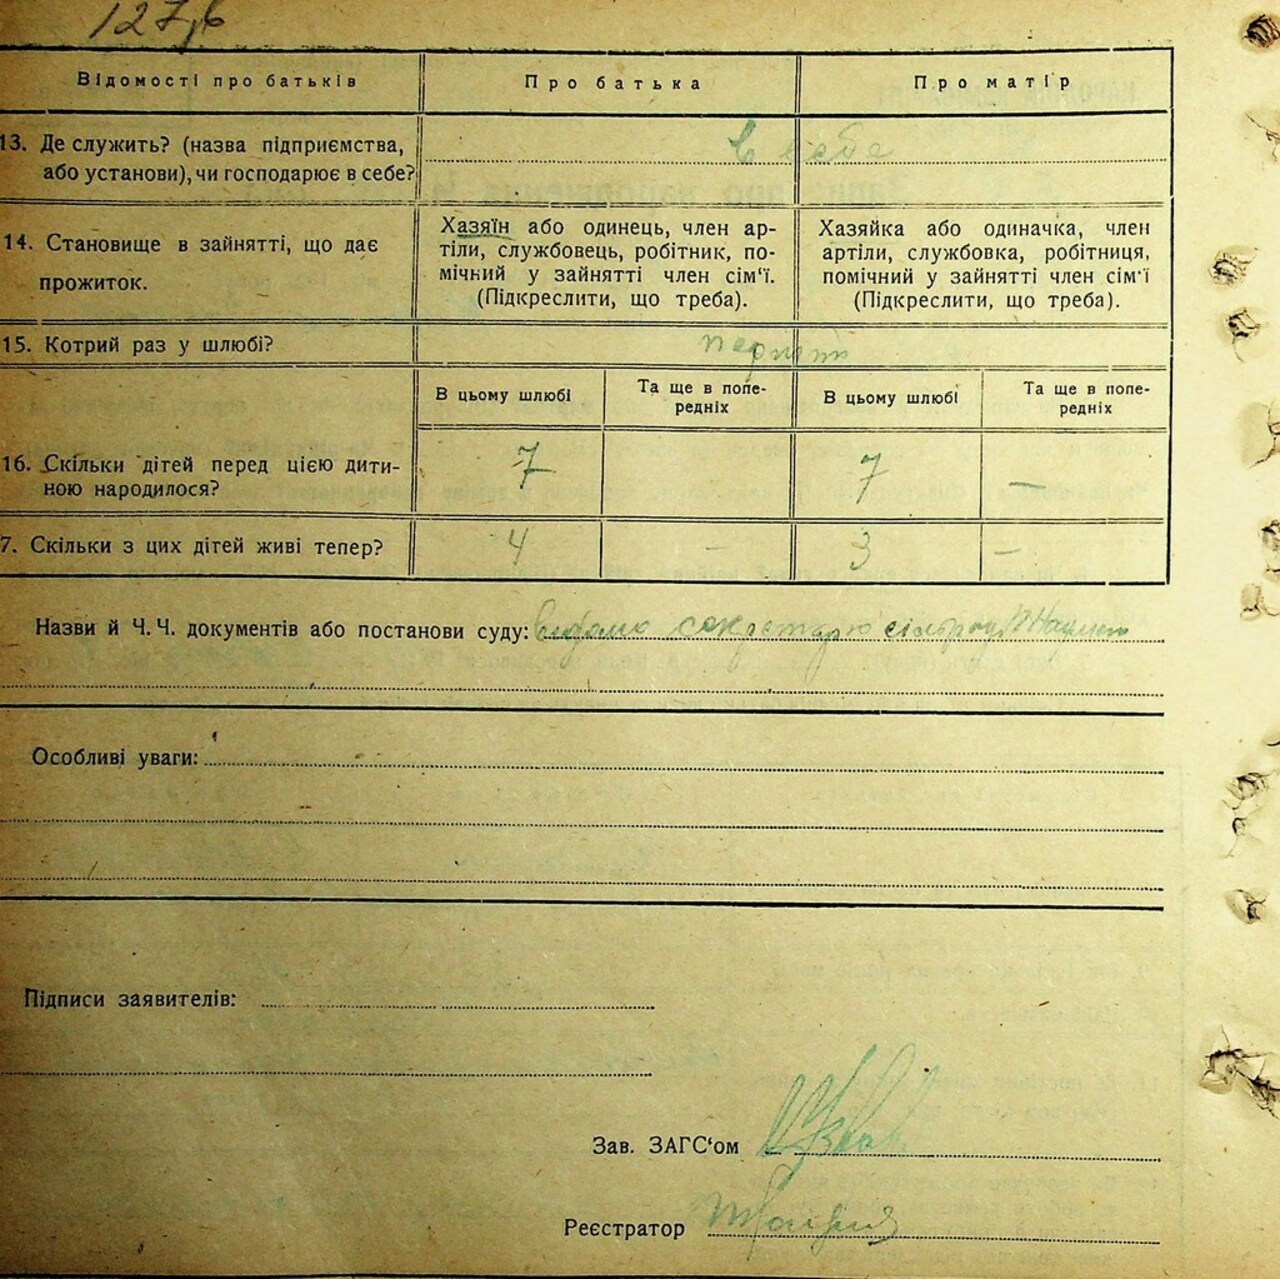 127зв
Відомості про батьків Про батька Про матір
13. Де служить? (назва підприємства, або установи), чи господарює в себе? в себе
14. Становище в зайнятті, що дає прожиток.
Хазяїн або одинець, член ар-
тіли, службовець, робітник, по-
мічний у зайнятті член сім‘ї.
(Підкреслити, що треба).
Хазяйка або одиначка, член
артіли, службовка, робітниця,
помічний у зайнятті член сім‘ї
(Підкреслити, що треба).
15. Котрий раз у шлюбі?
В цьому шлюбі
Та ще в попе-
редніх
В цьому шлюбі
Та ще в попе-
редніх
16. Скільки дітей перед цією дити-
ною народилося?
7 7 —
7. Скільки з цих дітей живі тепер? 4 — 3 —
Назви й Ч. Ч. документів або постанови суду: Видомо секретарю
Особливі уваги:
Підписи заявителів:
Зав. ЗАГС‘ом
Реєстратор